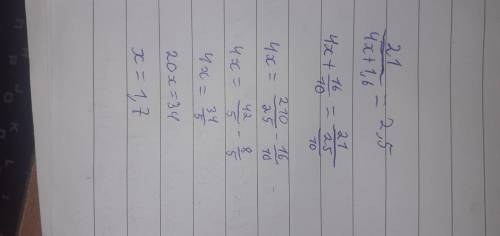 21/(4x+1,6) = 2,5
4x + 16/10 = 21/(25/10)
4x = 210/25 - 16/10
4x = 42/5 - 8/5
4x = 34/5
20x = 34
x = 1,7